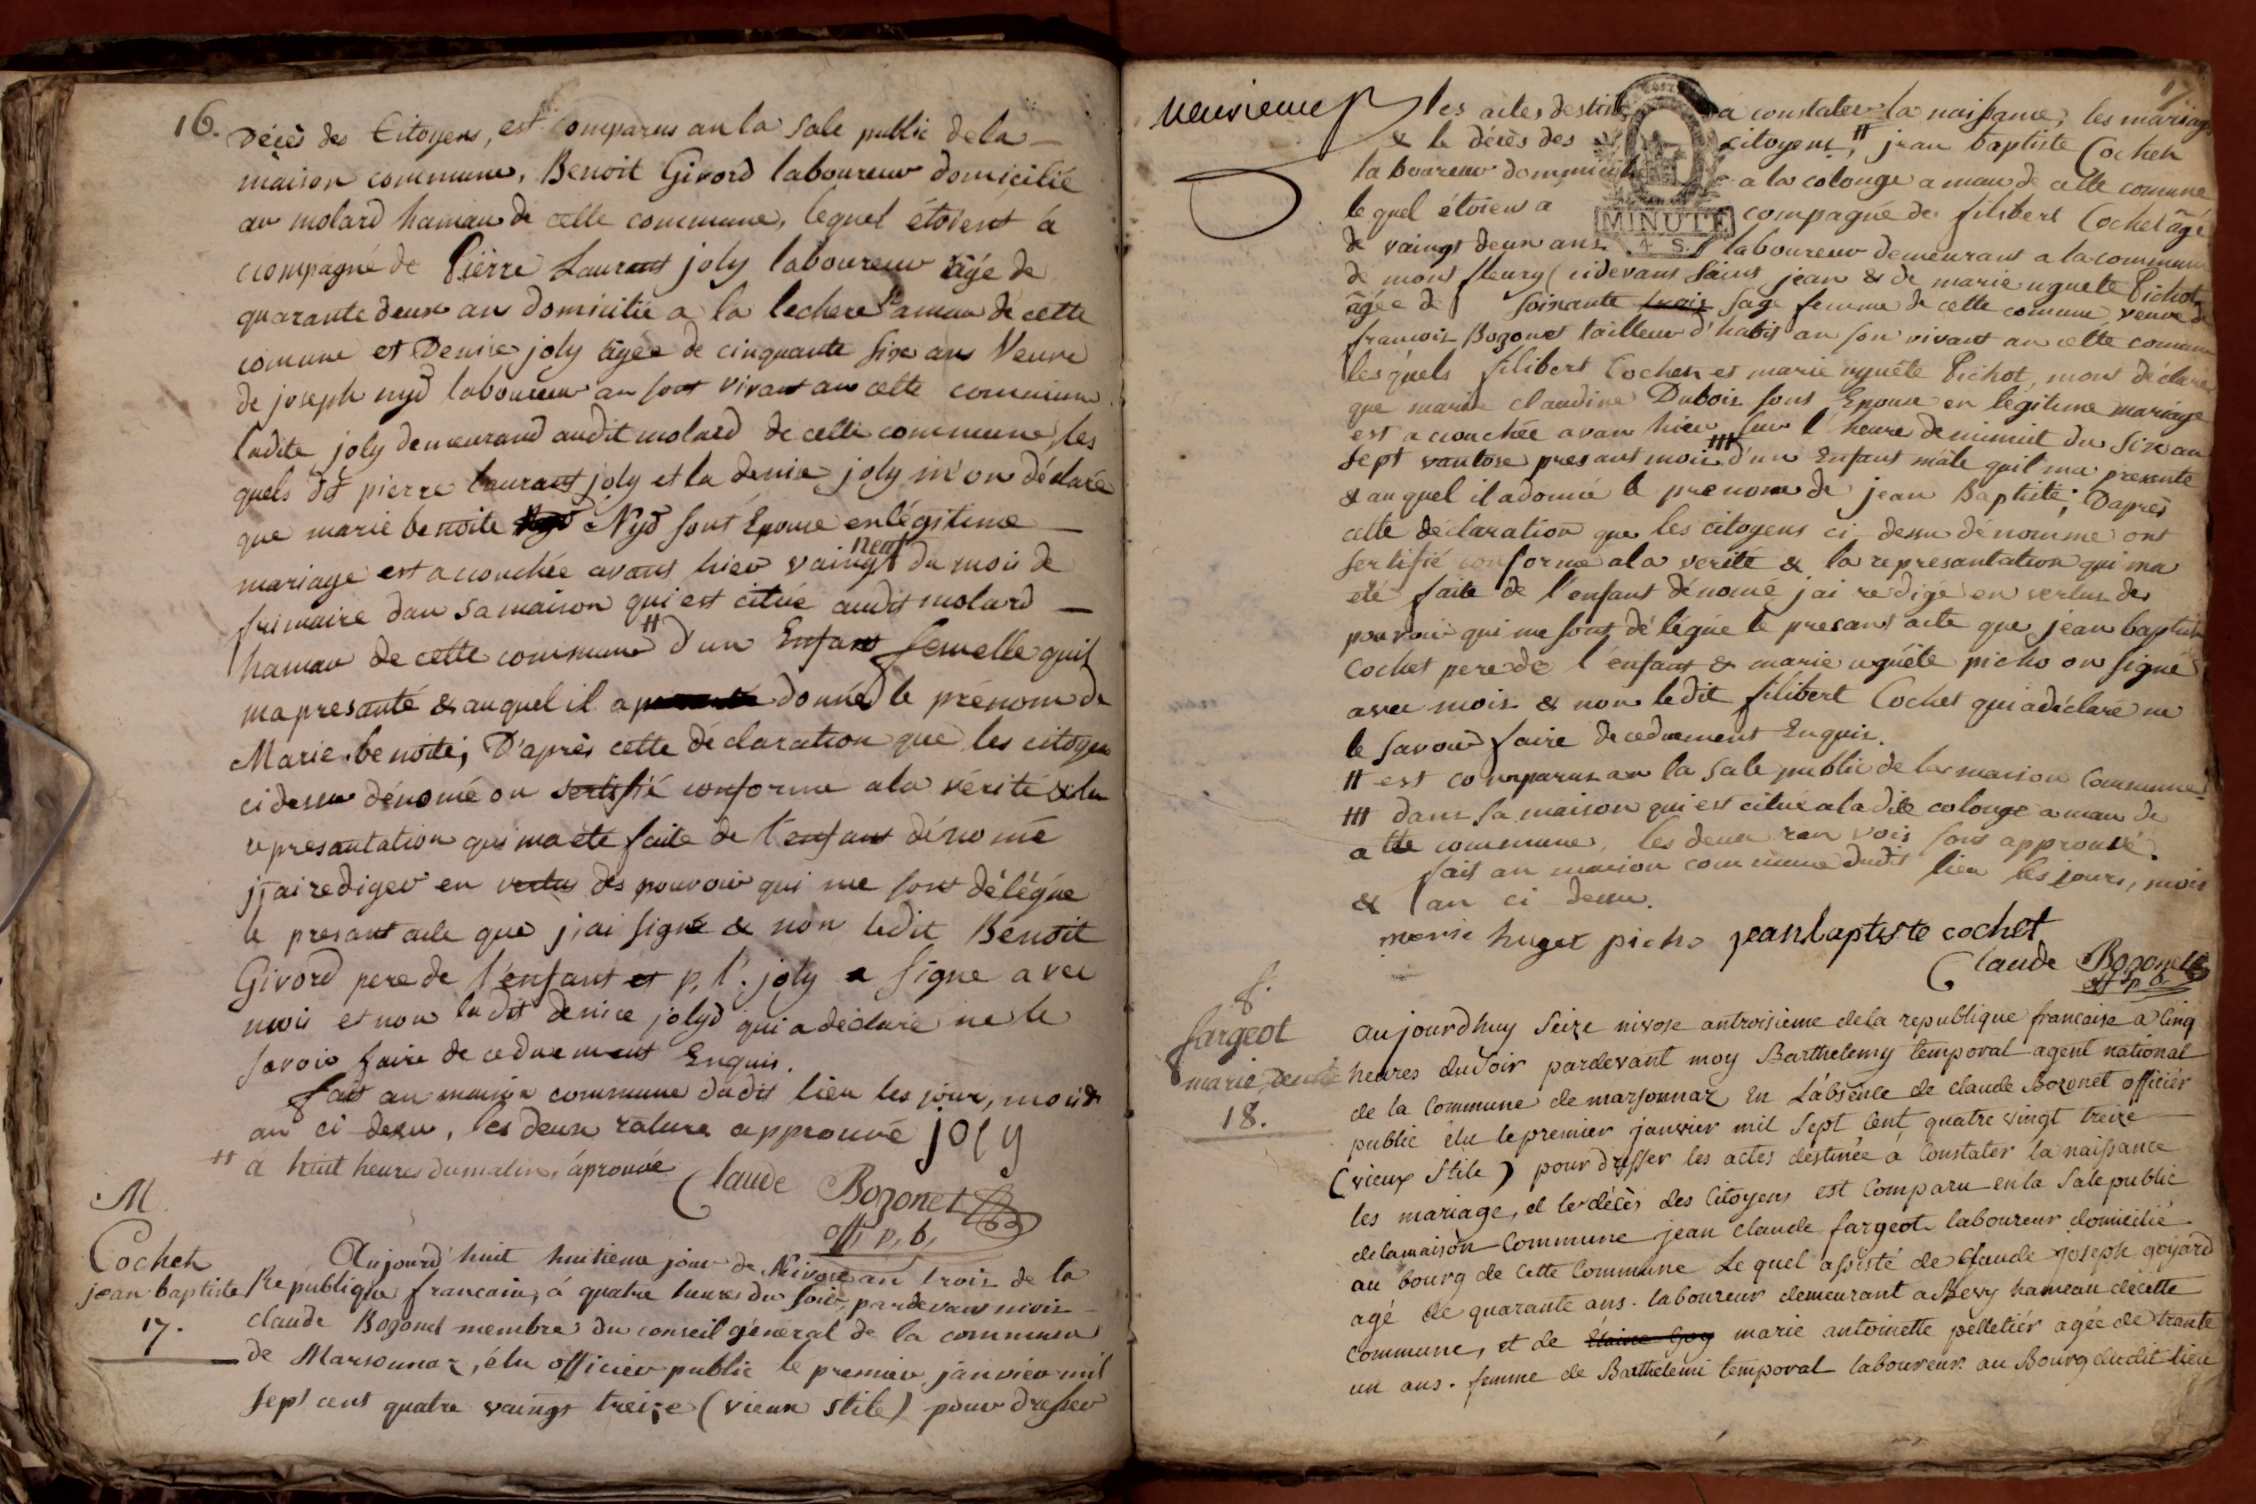 16.
Décès des Citoyens, est comparus an la Sale public de la
maison commune, Benoit Givord laboureur domicilié
au molard hamau de cette commune, lequel étoient a
ccompagné de Pierre Laurant joly laboureur âgé de
quarante deux an domicilié a la lechere hamau de cette
comune et Denise joly âgée de cinquante sixe ans Veuve
de joseph nyd laboureur an sont vivant an cette commune
ladite joly demeurand audit molard de cette commune, les
quels dit pierre laurant joly et la denise joly m'on déclaré
que marie benoite Nyd sont Epouse en légitime
mariage est acouchée avant hier vaingt neuf du mois de
frimaire dan sa maison qui est cituè audit molard
hamau de cette commune # d'un Enfant femelle quil
ma presanté & auquel il a donné le prénom de
Marie benoite; D'après cette déclaration que les citoyen
ci dessu dénomé on sertifié conforme a la vérité & la
representation qui ma été faite de l'enfant dénomé
j'ai rediger en vertus des pouvoir qui me sont délégue
le presant acte que j'ai signé & non ledit Benoit
Givord pere de l'enfant et p. l. joly a signe avec
mois et non ladit denice joly qui a déclaré ne le
savoir faire de ceduement Enquis.
fait an maison commune dudit lieu les jour, mois &
an ci dessu, les deux rature approuvé joly
# à huit heures du matin, áprouvée
Claude Bozonet
off. p. b.
M
Cochet
jean baptiste
17.
Aujourd'huit huitieme jour de Nivose an trois de la
République francaise, á quatre heures du soir, pardevant mois
claude Bozonet membre du conseil général de la commune
de Marsonnaz, élu officier public le premier janvier mil
sept cent quatre vaingt treize (vieux stile) pour dresser
17
les actes destiné a constater la naissance, les mariage
& le décès des citoyens, # jean baptiste Cochet
laboureur dommicilié a la colonge amau de cette comune
lequel étoient a compagné de filibert Cochet âgé
MINUTE
4 S.
de vaingt deux ans laboureur demeurant a la commune
de mont fleury (cidevant Saint jean & de marie uguete Pichot
âgée de soixante trois sage femme de cette comune veuve de
francois Bozonet tailleur d'habit an son vivant an cette comune
lesquels filibert Cochet et marie uguête Pichot, mont déclaré
que marie claudine Dubois sont Epouse en légitime mariage
est acouchée avan hier sur l'heure de minuit du sixe au
sept vantose presant mois # d'un Enfant mâle quil ma presenté
& auquel il a doné le prenom de jean Baptiste; D'après
cette déclaration que les citoyens ci dessu dénommé ont
sertifié conforme a la verité & la representation qui ma
eté faite de l'enfant dénomé j'ai redigé en vertus des
pouvoir qui me sont déléguè le presant acte que jean baptiste
Cochet pere de l'enfant & marie uguête picho on signé
avec mois & non ledit filibert Cochet qui a déclaré ne
le savoir faire deceduement Enquis.
# est comparus an la Sale public de la maison Commune
# dans sa maison qui est citué a ladite colonge amau de
cette commune, les deux ranvois sont approuvé.
fait an maison commune dudit lieu les jours, mois
& an ci dessu.
marie huget picho jean baptiste cochet
Claude Bozonet
off p b
f.
fargeot
marie
18.
aujourdhuy Seize nivose an troisieme de la république francaise a Cinq
heures du Soir pardevant moy Barthelemy temporal agent national
de la Commune de marsonnaz En L'absence de claude Bozonet officier
public élu le premier janvier mil Sept Cent quatre vingt treize
(vieux Stile) pour dresser les actes destinée á Constater la naissance
les mariage, et le décès des Citoyens est Comparu en la Sale public
de la maison Commune jean Claude fargeot laboureur domicilié
au bourg de Cette Commune Lequel assisté de Claude joseph goyard
agé de quarante ans. laboureur demeurant a hameau de cette
commune, et de marie antoinette pelletiér agée de trante
un ans. femme de Barthelemi temporal laboureur au Bourg dudit lieu